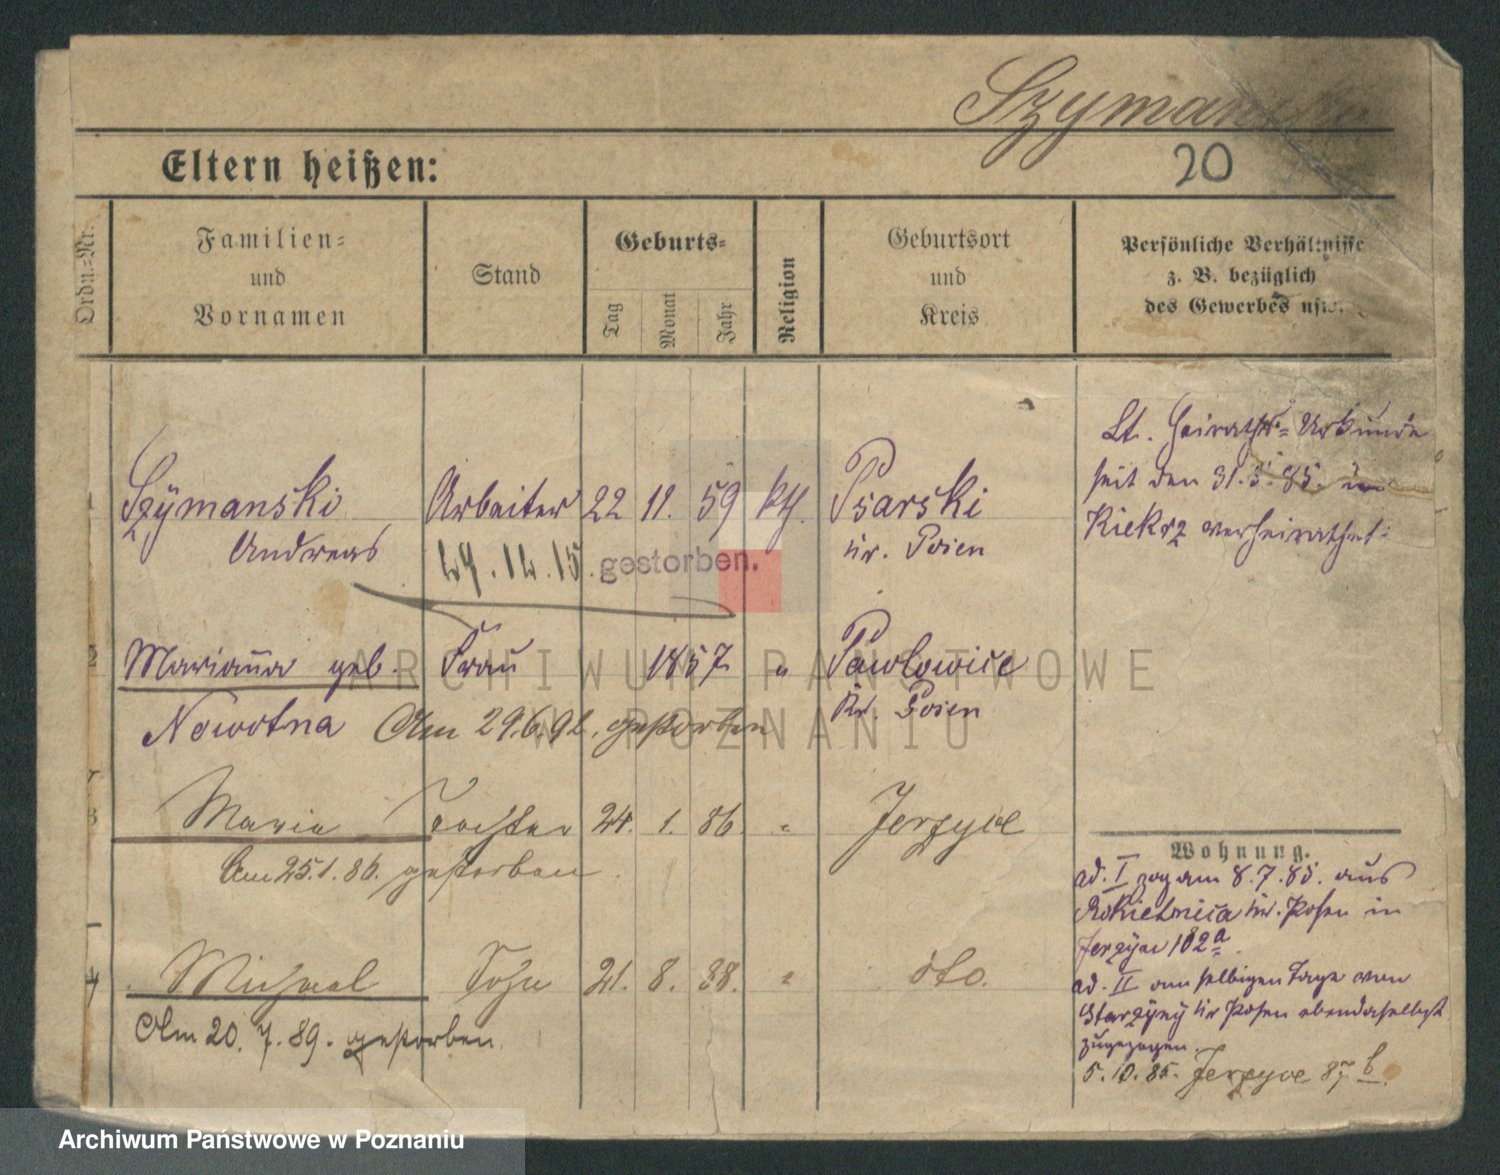 Szymanski
20
Eltern heißen:
Ordn.=Nr.
Familien=
und
Vornamen
Stand
Geburts=
Tag
Monat
Jahr
Religion
Geburtsort
und
Kreis
Persönliche Verhältnisse
z. B. bezüglich
des Gewerbes usw.
Szymanski Arbeiter 22 11. 59 kth. Psarski
Andreas
Kr. Posen
29.12.15. gestorben.
Lt. Heiraths=Urkunde
seit den 31.5.85. in
Kiekrz verheirathet.
2 Marianna geb. Frau 1857 " Pawlowice
Nowotna Kr. Posen
Am 29.6.92. gestorben
3 Maria Tochter 24. 1. 86 " Jerzyce
Am 25.1.86. gestorben.
4 Michael Sohn 21. 8. 88. " dto.
Am 20.7.89. gestorben.
Wohnung.
ad. I zog am 8.7.85. aus
Rokietnica Kr. Posen in
Jerzyce 102a.
ad. II am selbigen Tage von
Starzyny Kr Posen ebendaselbst
zugezogen.
5.10.85. Jerzyce 87 b.
ARCHIWUM PAŃSTWOWE
W POZNANIU
Archiwum Państwowe w Poznaniu